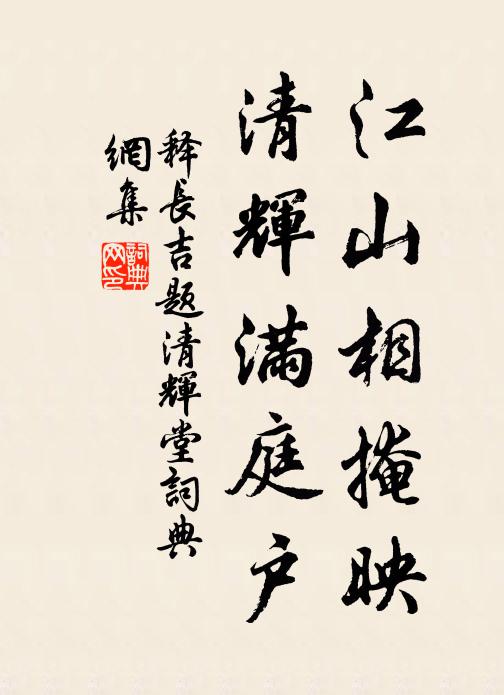 江山相掩映
清輝滿庭戶
释長吉题清輝堂詞典
網集
詞典網印